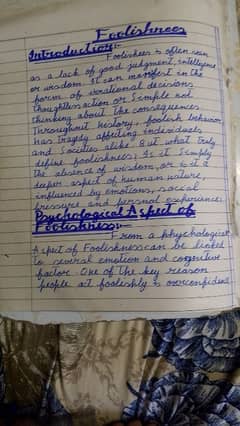 Foolishness
Introduction:-
Foolishness is often seen
as a lack of good judgment, intelligence
or wisdom. It can manifest in the
form of irrational decisions
thoughtless action or Simple not
thinking about the consequences
Throughout history, foolish behavior
has Tragedy affecting individuals
and Societies alike. But what truly
define foolishness; Is it Simply
the absence of wisdom, or is it a
deeper aspect of human nature,
influenced by emotions, social
pressure and personal experience
Psychological Aspect of
Foolishness:-
From a phychological
Aspect of Foolishness can be linked
to several emotion and cognitive
factor. One of the key reason
people act foolishly is overconfident